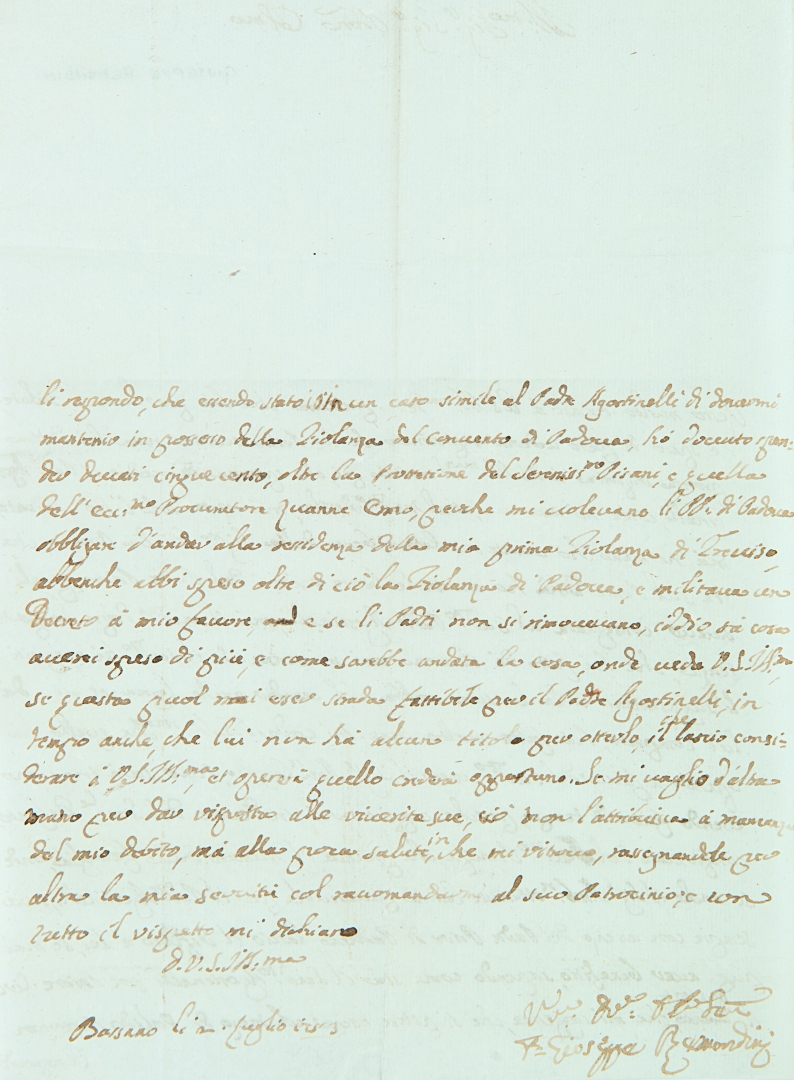 li rispondo, che essendo stato in un caso simile al Padre Agostinelli di dovermi
mantenir in possesso della Figlolanza del convento di Padova, hò dovuto spen=
der ducati cinque cento, oltre la Protetione del Sereniss:mo Pisani, e quella
dell'ecc:mo Procuratore Zuanne Emo, perche mi volevano li PP. di Padova
obbligare d'andar alla residenza della mia prima Figlolanza di Treviso,
abbenche abbi speso oltre di ciò la Figlolanza di Padova, e militava un
Decreto à mio favore, e se li Padri non si rimovevano, iddio sà cosa
averei speso di più, e come sarebbe andata la cosa, onde veda V.S.Ill:ma
se questa puol mai eser strada fattibile per il Padre Agostinelli, in
tempo anche, che lui non hà alcun titolo per oterlo, il che lascio consi=
derare à V.S.Ill:ma, et opererà quello crederà opportuno. Se mi vaglio d'altra
mano per dar risposta alle riverite sue, ciò non l'attribuisca à mancanza
del mio debito, mà alla poca salute, in che mi ritrovo, rassegnandole per
altro la mia servitù col racomandarmi al suo Patrocinio; e con
tutto il rispetto mi dichiaro
D.V.S.Ill:ma
Bassano li luglio
F. Gioseppe Remondini